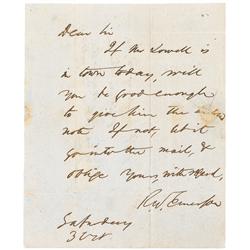 Dear Sir
If Mr Lowell is
in town today, will
you be good enough
to give him the
note If not, let it
go into the mail, &
oblige Yours, with regard,
R. W. Emerson
Saturday
3 Oct